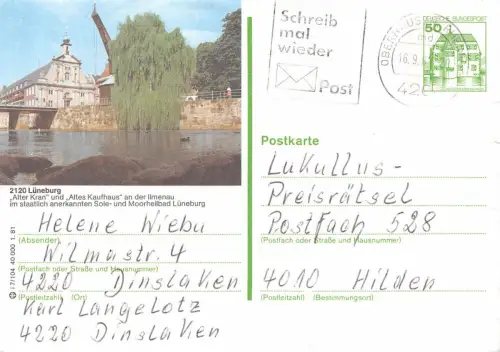 Schreib
mal
wieder
Post
DEUTSCHE BUNDESPOST
50
16.9.
42
2120 Lüneburg
„Alter Kran" und „Altes Kaufhaus" an der Ilmenau
im staatlich anerkannten Sole- und Moorheilbad Lüneburg
Helene Wiebu
(Absender)
Wilmastr. 4
(Postfach oder Straße und Hausnummer)
4220 Dinslaken
(Postleitzahl) (Ort)
Karl Langelotz
4220 Dinslaken
17/104 40 000 1.81
Postkarte
Lukullus-
Preisrätsel
Postfach 528
(Postfach oder Straße und Hausnummer)
4010 Hilden
(Postleitzahl) (Bestimmungsort)